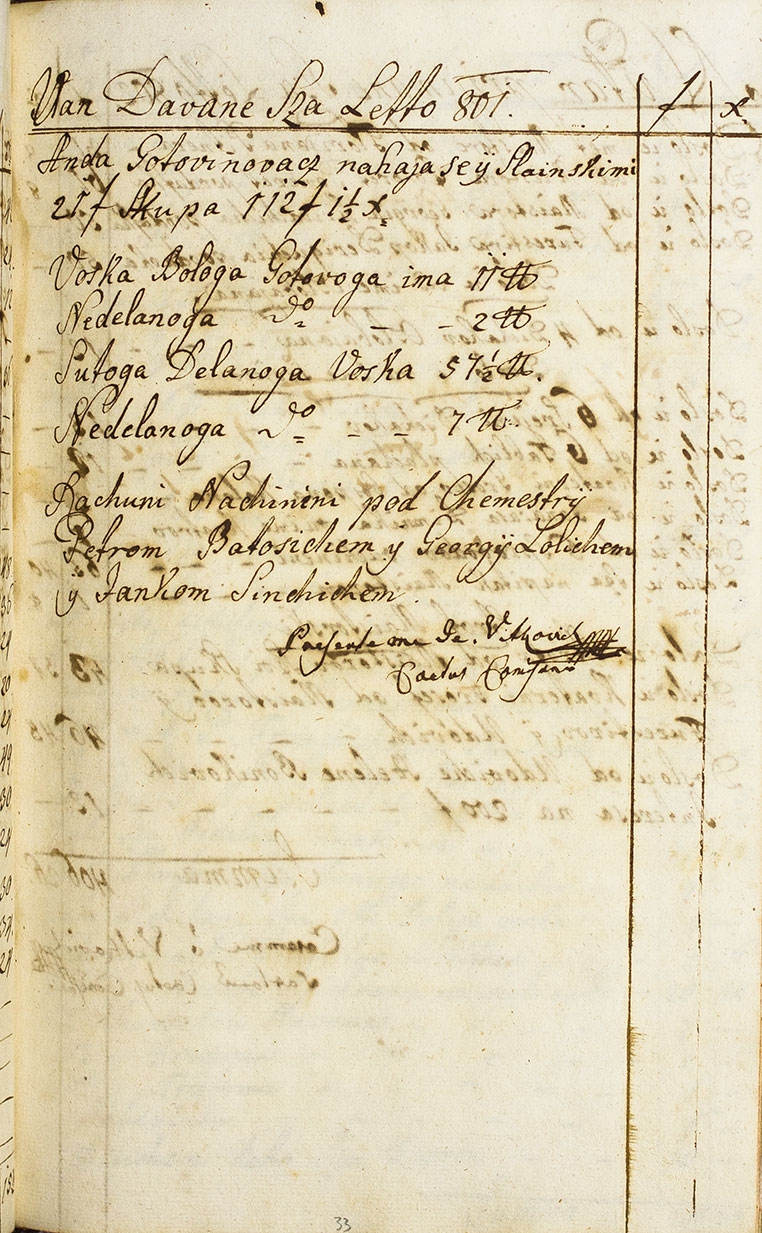 Van Davane Sza Letto 801. f x.
Anda Gotovinnovacz nahaja se ÿ Slainskimi
25 f Skupa 112 f 1½ x.
Voska Bologa Gotovoga ima 11 ℔
Nedelanoga do - - 2 ℔
Sutoga Delanoga Voska 57½ ℔.
Nedelanoga do - - 7 ℔.
Rachuni Nachinini pod Chemestrÿ
Petrom Batosichem ÿ Georgÿ Lolichem
ÿ Jankom Sinchichem.
Presente me de. Vitkovich
33